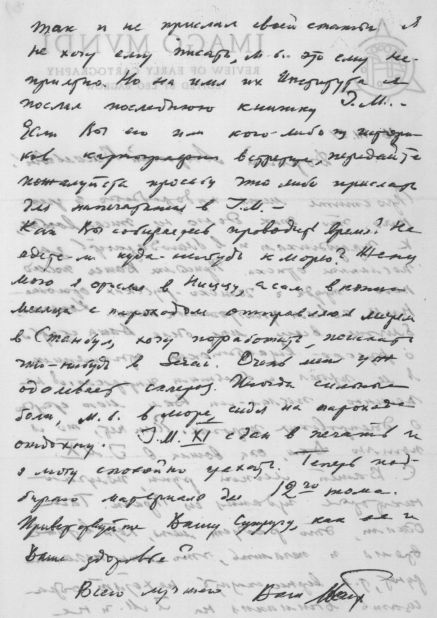 так и не прислал своей статьи. Я
не хочу ему писать, м.б. это ему не-
приятно. Но на имя их Института я
послал последнюю книжку I.M.
Если Вы его или кого-либо из истори-
ков картографии встретите, передайте
пожалуйста просьбу что-либо прислать
для напечатания в I.M. —
Как Вы собираетесь проводить время? Не
едете-ли куда-нибудь к морю? Жену
мою я отправил в Ниццу, а сам в конце
месяца с пароходом отправляюсь
в Станбул, хочу поработать, поискать
что-нибудь в Serai. Очень меня уж
одолевает склероз. Иногда сильные
боли, м.б. в море, сидя на пароходе
отдохну. I.M. XI сдан в печать и
я могу спокойно уехать. Теперь под-
бираю материал для 12го тома.
Приветствуйте Вашу супругу, как ее и
Ваше здоровье?
Всего лучшего Ваш
IMAGO MVNDI
REVIEW OF EARLY CARTOGRAPHY